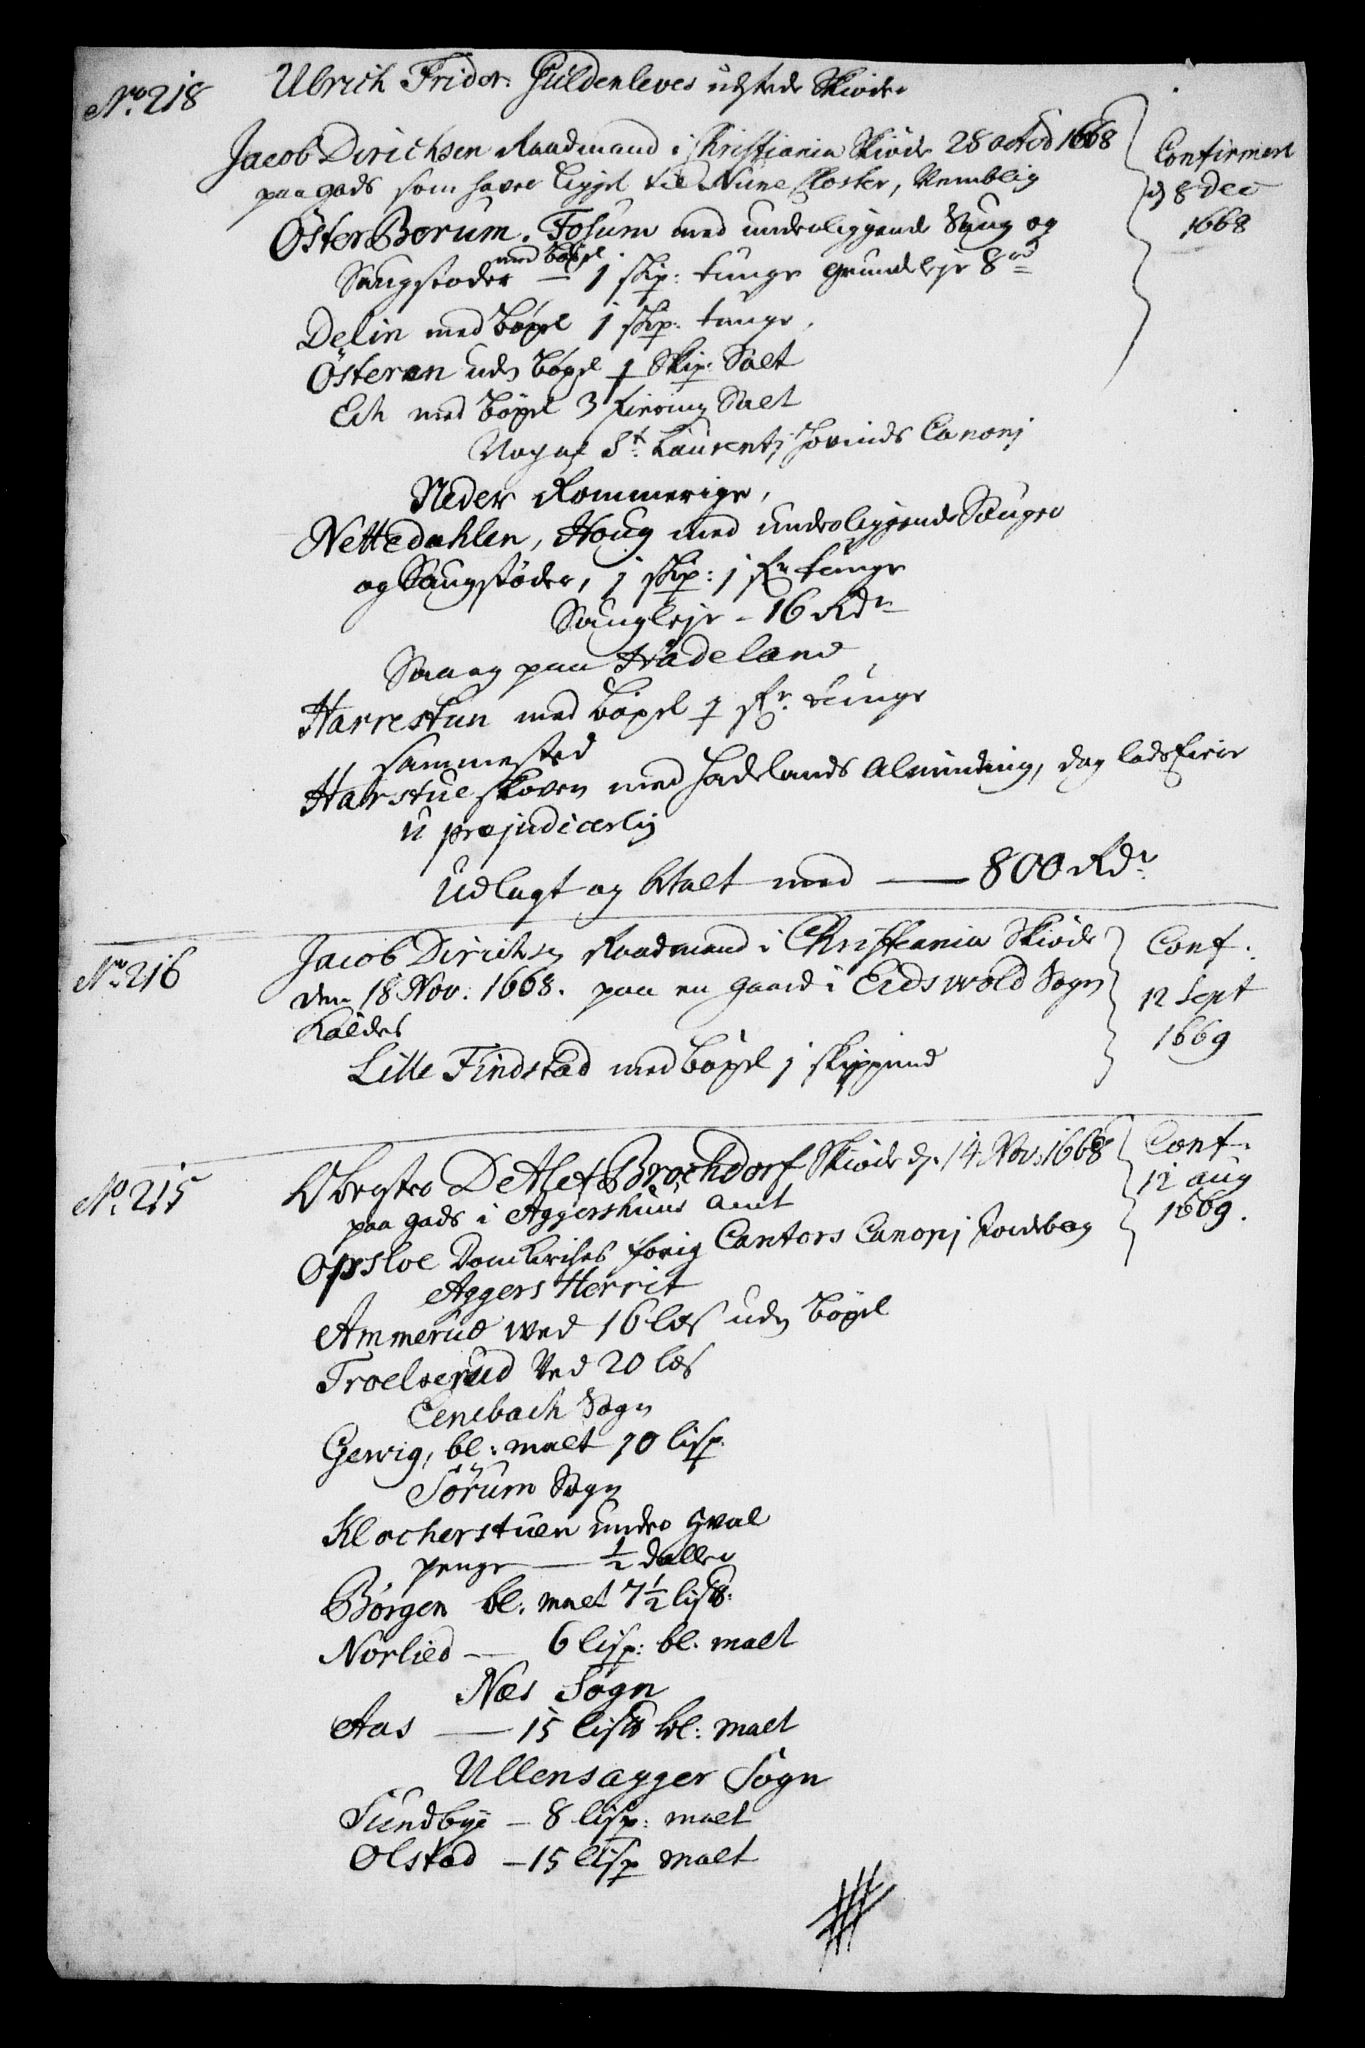 No. 218 Ulrich Fridr. Guldenleves udstede Skiøder
Jacob Dirichsen Raadmand i Christiania Skiøde 28 octob 1668
Confirmert
paa gods som hafver ligget til Nune Closter, Nemblig
d 8 Dec
1668
Öster Berum. Fosum med underliggende Saug og
Saugstøder med bøxel 1 skip: tunge grundleje 8 rd
Delin med bøxel 1 skip: tunge,
Østeren uden bøxel 1 Skip: Salt
Ech med bøxel 3 fiering Salt
Nog af St. Laurentj Hovinds Canonj
Neder Rommerige,
Nettedahlen, Houg med underliggende Sauger
og Saugstøder, 1 skip: 1 fr tunge
Saugleje - 16 Rdr
Saaug paa Hadeland
Harrestun med bøxel 1 fr. tunge
sammested
Harstue skoven med Hadelands Alminding, dog
u præjudicerlig
Udlagt og betalt med — 800 Rdr.
No. 216 Jacob Dirichsen Raadmand i Christiania Skiøde
Conf.
den 18 Nov: 1668. paa en gaard i Eidswold Sogn
12 Sept
kaldes
1669
Lille Findstad med bøxel 1 skippund
No. 215 Obrester Detlef Brochdorf Skiøde d. 14 Nov. 1668
Conf.
12 aug
1669.
paa gods i Aggershuus Amt
Opsloe Domkirches forig Cantors Canonj Jordebog
Aggers Herrit
Ammerud wed 16 læs uden bøxel
Troelserud Ved 20 læs
Enebach Sogn
Gervig, bl: malt 10 lisp.
Sørum Sogn
Klocherstuen under Hval
penge — ½ daller
Børgen bl. malt 7½ lis℔:
Norlied — 6 lisp: bl. malt
Næs Sogn
Aas — 15 lis℔ bl: malt
Ullensagger Sogn
Sundbye — 8 lisp: malt
Ølstad — 15 lisp malt